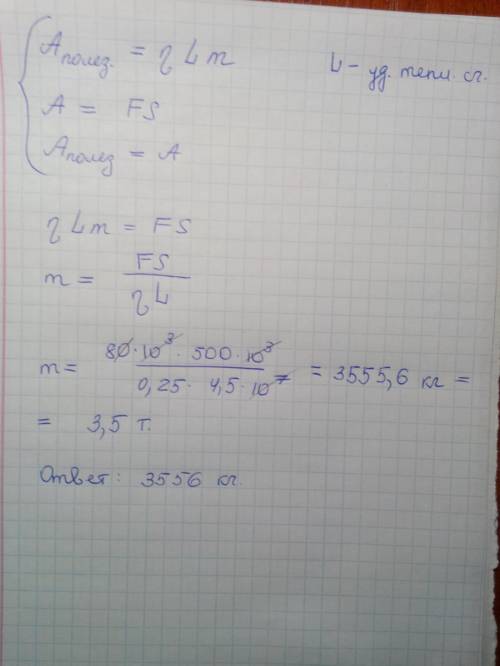 Aполез. = η L m
L - уд. тепл. сг.
A = FS
Aполез = A
η L m = FS
m = FS / η L
m = 80·10³ · 500·10³ / 0,25 · 4,5·10⁷ = 3555,6 кг =
= 3,5 т.
Ответ: 3556 кг.